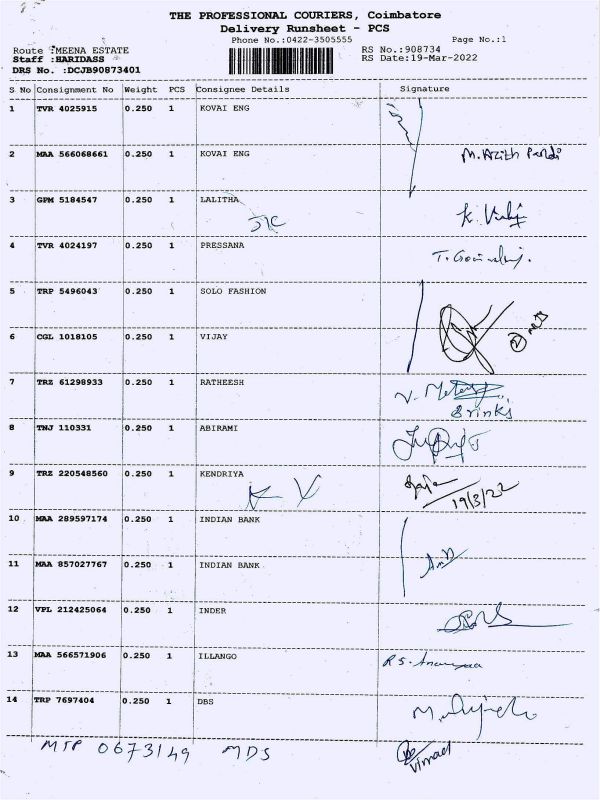 THE PROFESSIONAL COURIERS, Coimbatore
Delivery Runsheet - PCS
Phone No.:0422-3505555 Page No.:1
Route :MEENA ESTATE RS No.:908734
Staff :HARIDASS RS Date:19-Mar-2022
DRS No. :DCJB90873401
S No Consignment No Weight PCS Consignee Details Signature
1 TVR 4025915 0.250 1 KOVAI ENG
2 MAA 566068661 0.250 1 KOVAI ENG
3 GPM 5184547 0.250 1 LALITHA
4 TVR 4024197 0.250 1 PRESSANA
5 TRP 5496043 0.250 1 SOLO FASHION
6 CGL 1018105 0.250 1 VIJAY
7 TRZ 61298933 0.250 1 RATHEESH
Brinks
8 TNJ 110331 0.250 1 ABIRAMI
9 TRZ 220548560 0.250 1 KENDRIYA
K V
19/3/22
10 MAA 289597174 0.250 1 INDIAN BANK
11 MAA 857027767 0.250 1 INDIAN BANK
12 VPL 212425064 0.250 1 INDER
13 MAA 566571906 0.250 1 ILLANGO
14 TRP 7697404 0.250 1 DBS
MTP 0673149 MDS
Vimal